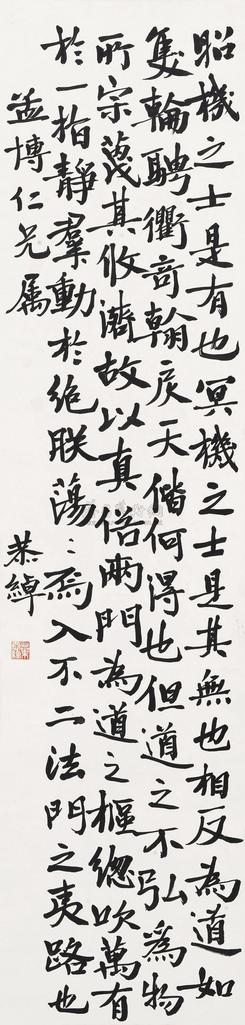 照機之士是有也冥機之士是其無也相反為道如
隻輪騁衢奇翰戾天偕何得也但道之不弘為物
所宗蔑其攸濟故以真俗兩門為道之樞總吹萬有
於一指靜羣動於絕朕蕩〻焉入不二法門之夷路也
孟博仁兄屬
恭綽